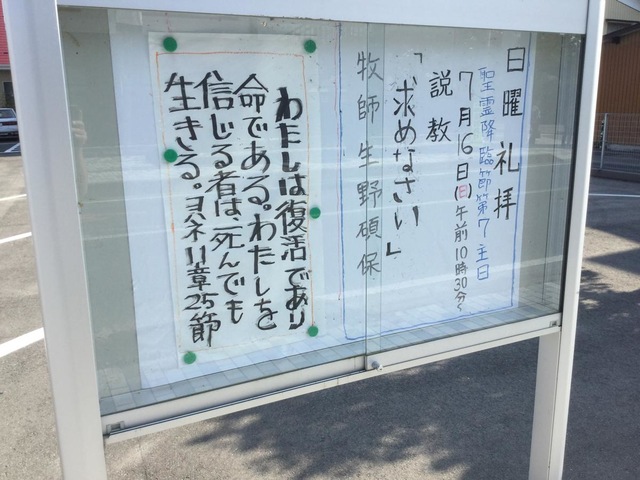 日曜礼拝
聖霊降臨節第7主日
7月16日(日)午前10時30分〜
説教
「求めなさい」
牧師 生野碩保
わたしは復活であり
命である。わたしを
信じる者は、死んでも
生きる。ヨハネ11章25節